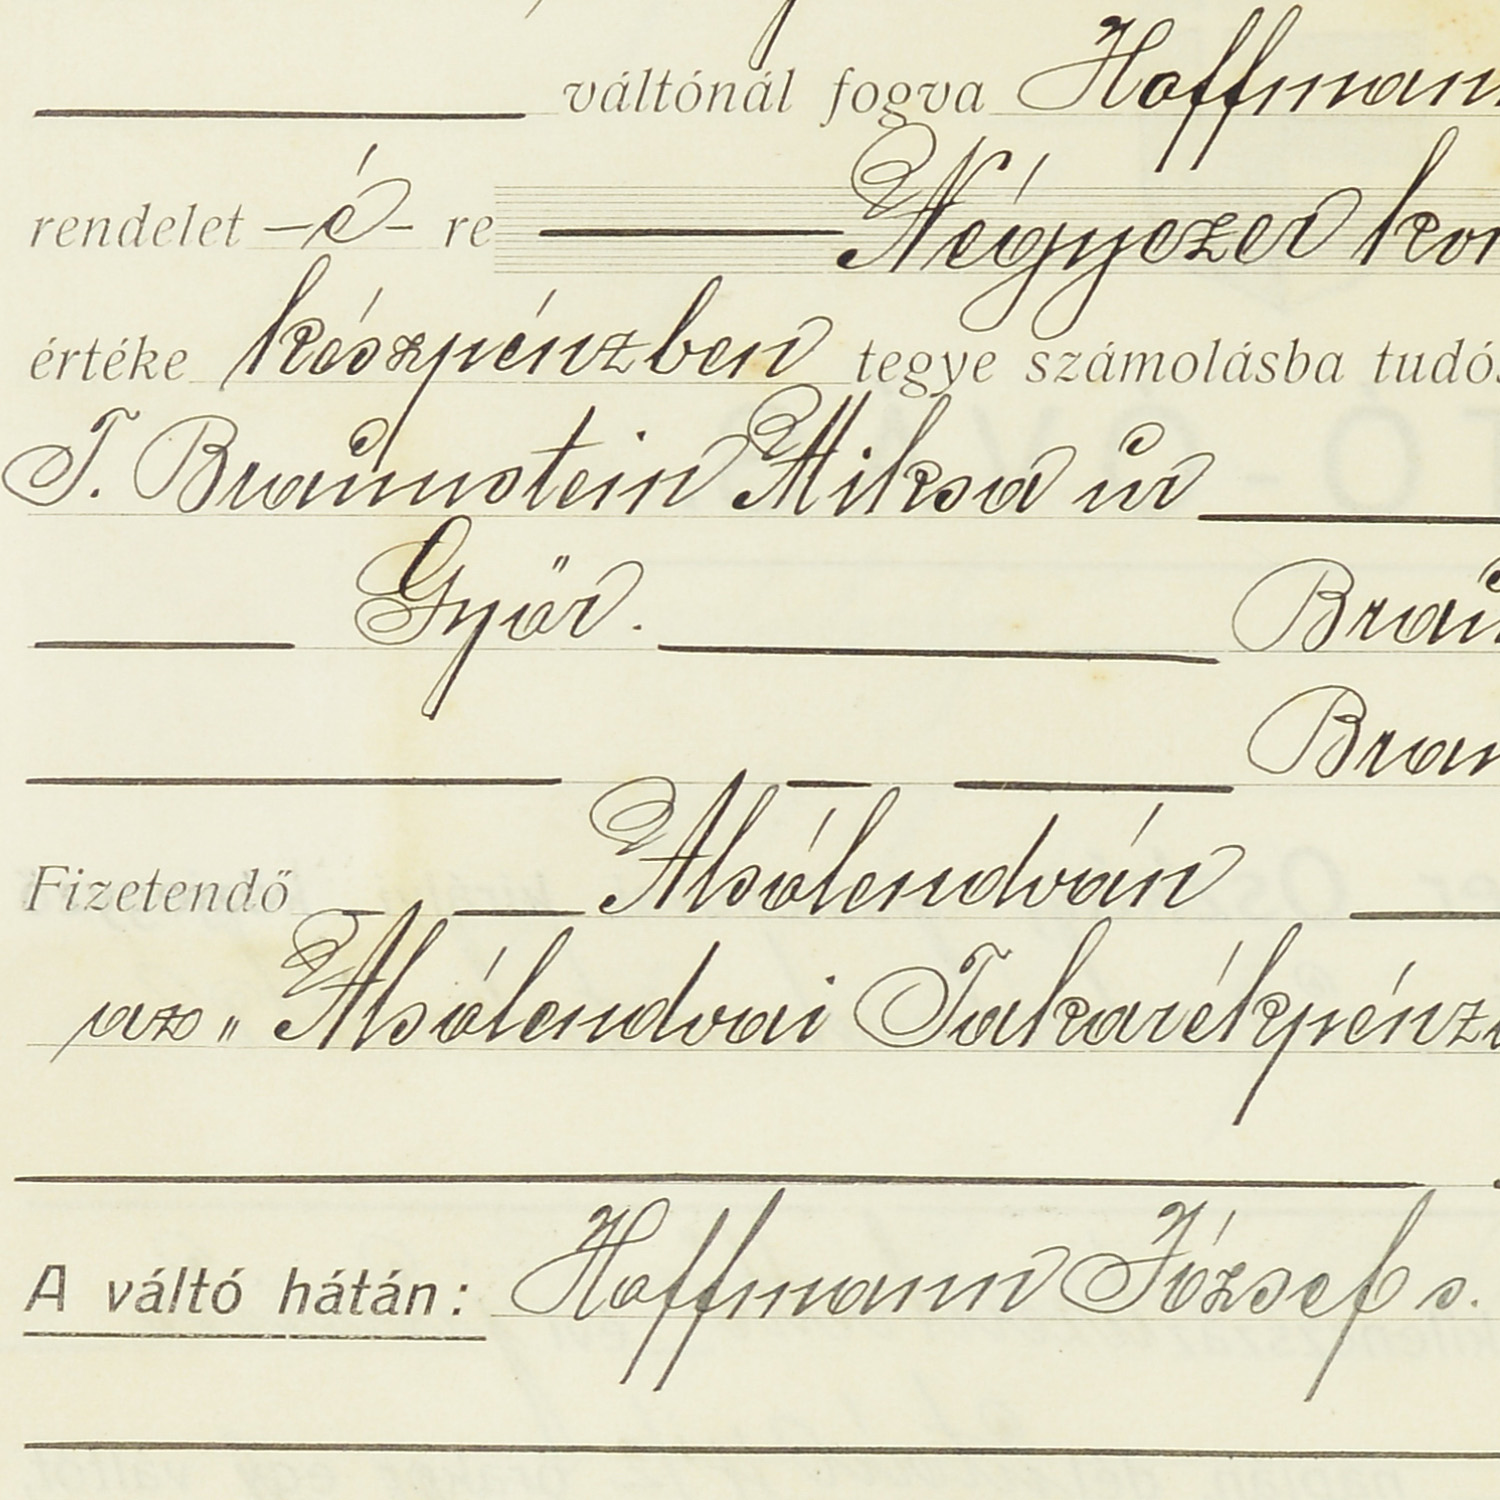 váltónál fogva Hoffmann
rendelet -é- re Négyezer kor
értéke készpénzben tegye számolásba tudós
T. Braunstein Miksa úr
Győr. Brau
Brau
Fizetendő Alsólendván
az „ Alsólendvai Takarékpénz
A váltó hátán: Hoffmann József s.